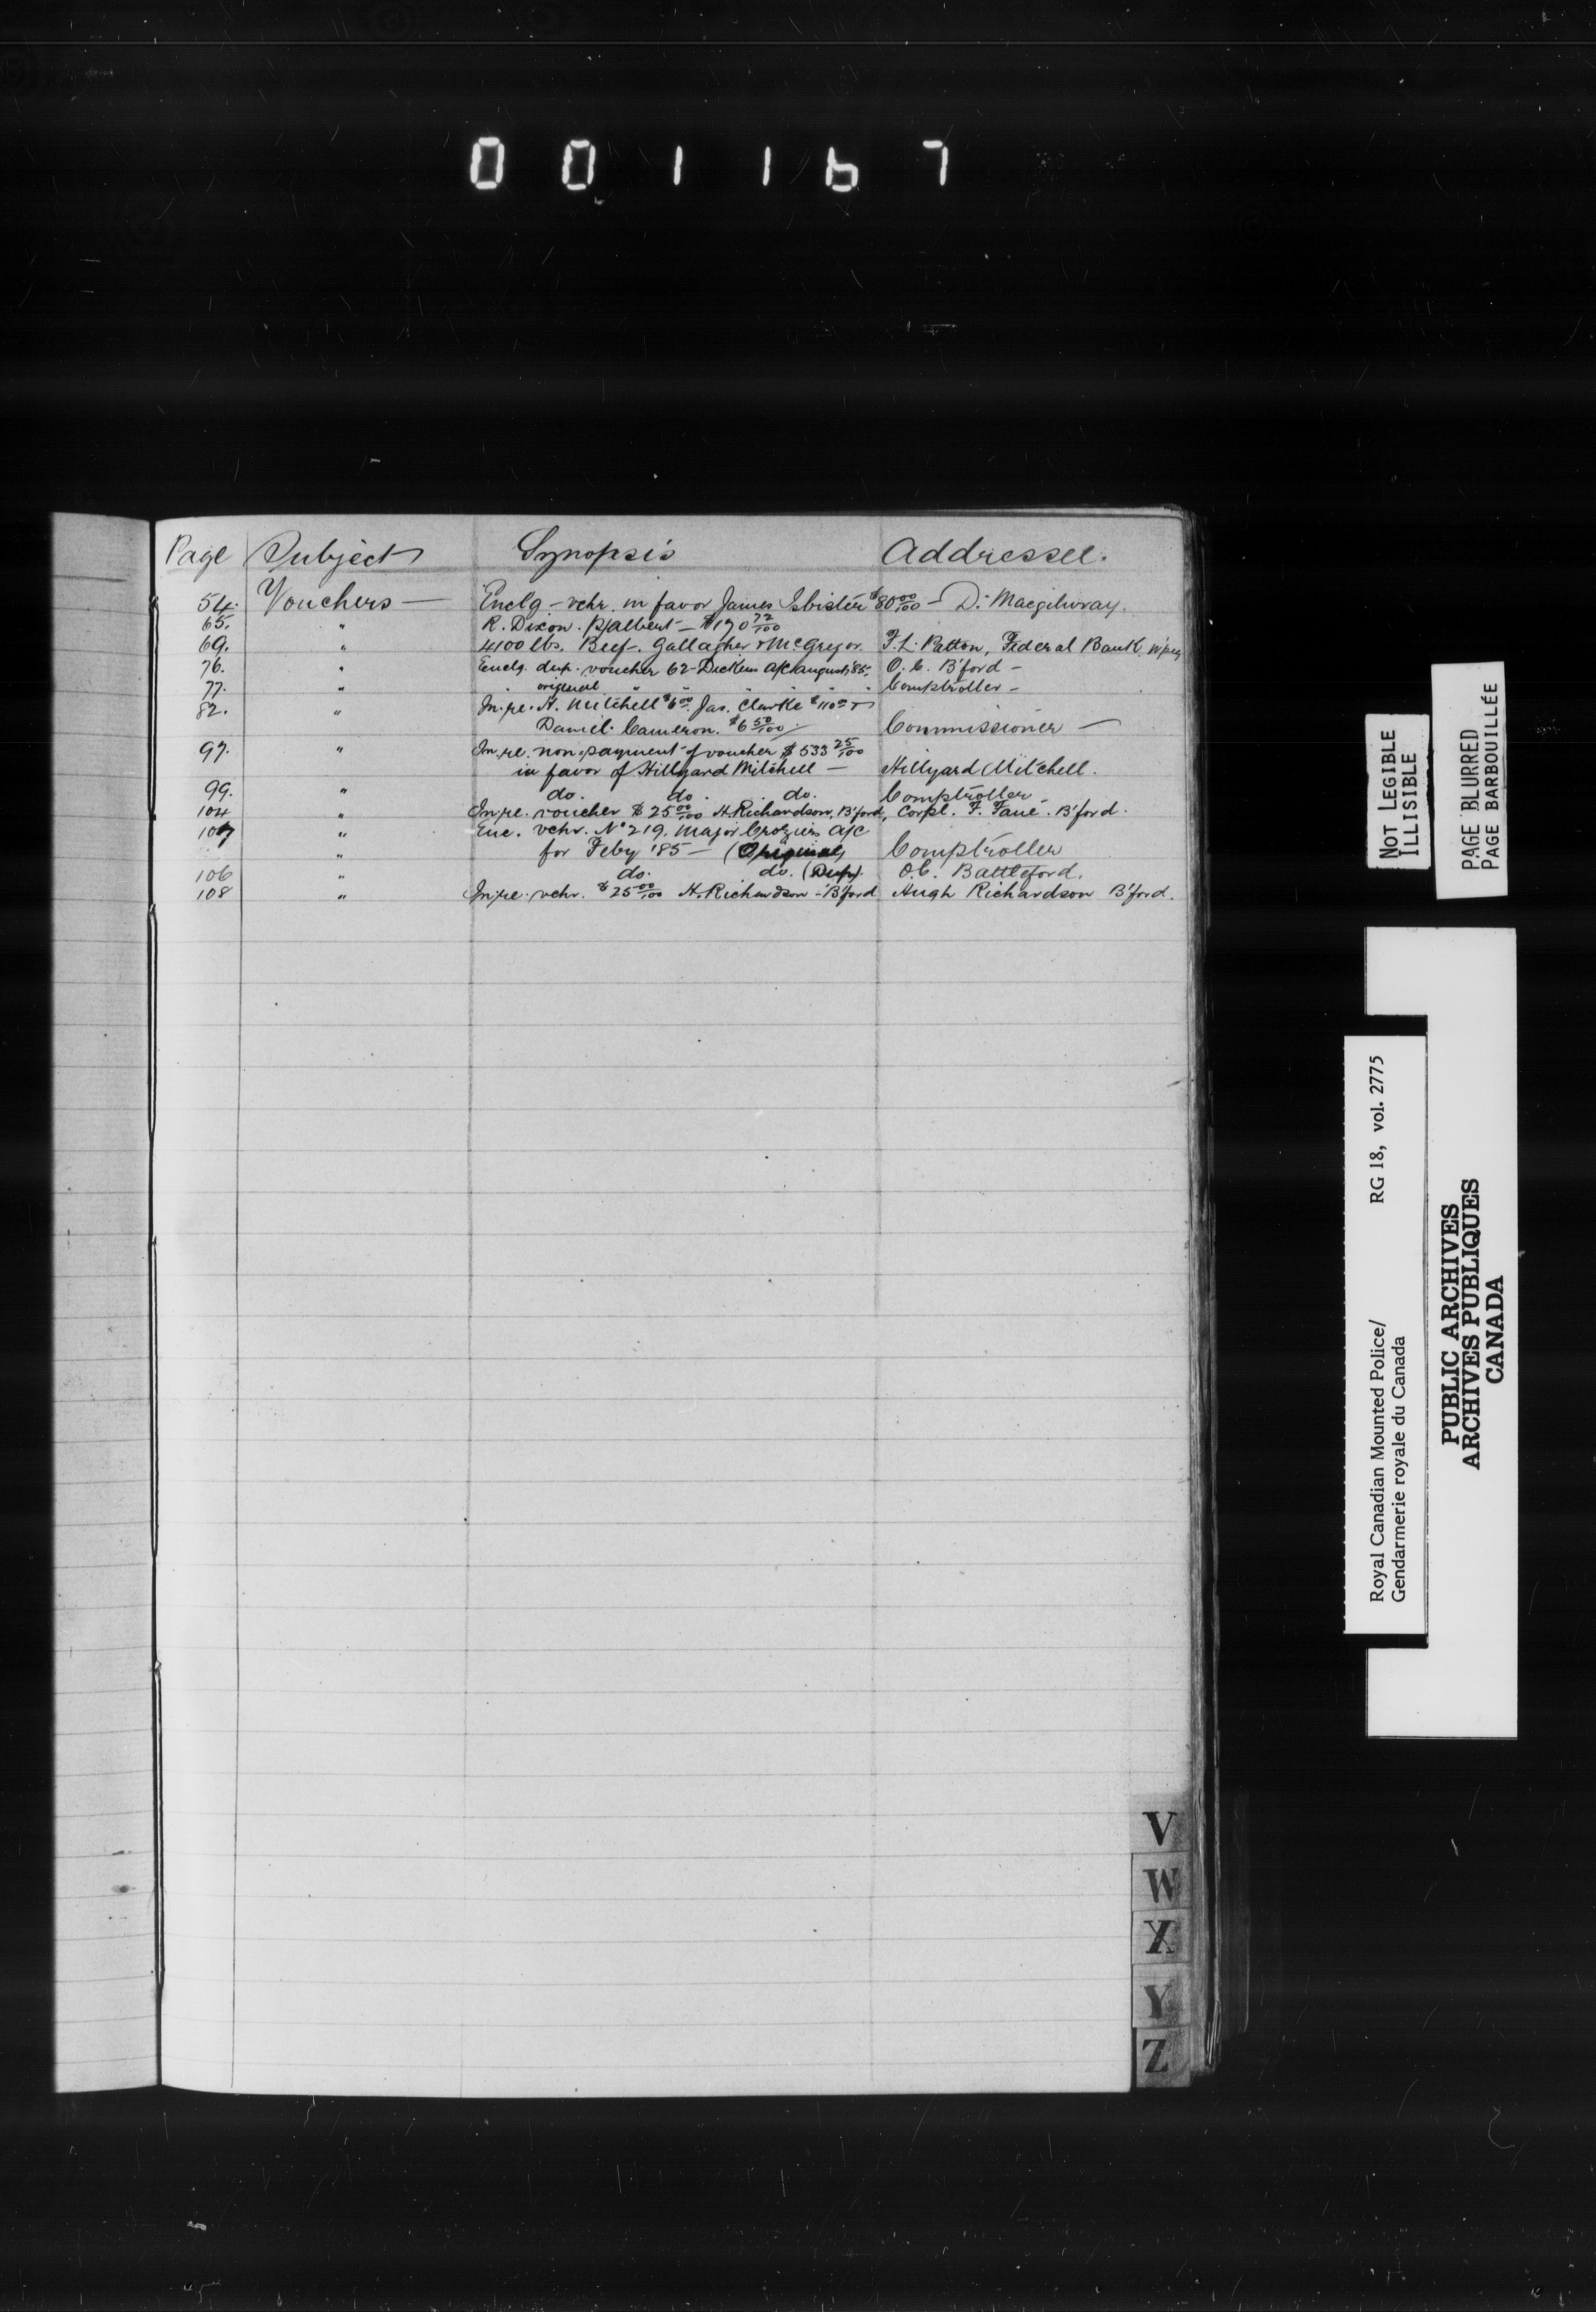 001167
Page Subject Synopsis Addressee.
54. Vouchers — Enclg - vchr. in favor James Isbister $80 00/100 - D. Macgilivray.
65. " R. Dixon. P/Albert - $190 72/100
69. " 4100 lbs. Beef. Gallagher & McGregor. F. L. Patton, Federal Bank, W'peg
76. " Enclg. dup. voucher 62 - Dickens A/C August, '85. O. C. B'ford -
77. " " original " " " " " Comptroller -
82. " In. re. H. Mitchell $6 00. Jas. Clarke $110 00 &
Daniel Cameron. $6 50/100 Commissioner —
97. " In. re. non-payment of voucher $533 25/100
in favor of Hillyard Mitchell — Hillyard Mitchell.
99. " do. do. do. Comptroller
104 " In. re. voucher $25 00/100 H. Richardson, B'ford, Corpl. F. Fane. B'ford.
107 " Enc. vchr. No 219. Major Croziers A/C
" for Feby '85 — (Original) Comptroller
106 " do. do. (Dup). O.C. Battleford.
108 " In. re. vchr. $25 00/100 H. Richardson - B'ford Hugh Richardson B'ford.
V
W
X
Y
Z
NOT LEGIBLE
ILLISIBLE
PAGE BLURRED
PAGE BARBOUILLÉE
Royal Canadian Mounted Police/ RG 18, vol. 2775
Gendarmerie royale du Canada
PUBLIC ARCHIVES
ARCHIVES PUBLIQUES
CANADA